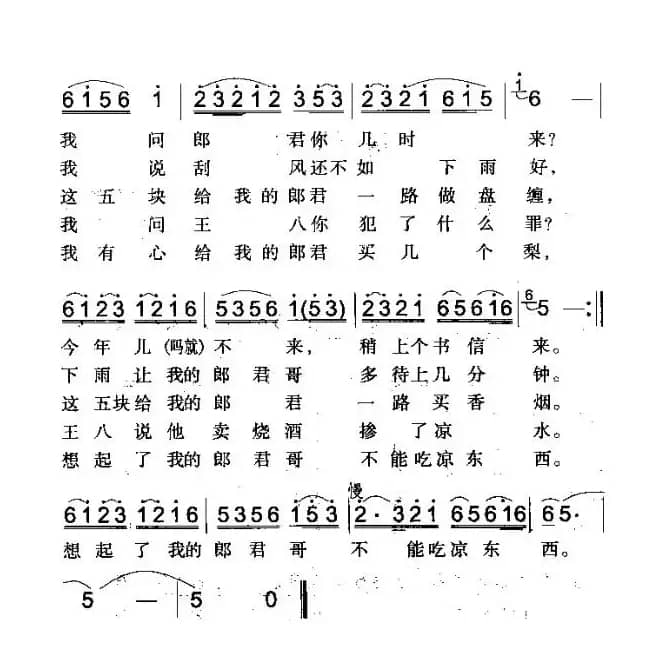 6156 1 232121 2 3 5 3 2321 615 1 6 —
我 问 郎 君你 几 时 来?
我 说 刮 风还不如 下雨好,
这五块给我的郎君一路做盘缠,
我 问 王 八你犯了什么罪?
我有心给我的郎君买几个梨,
6123 1216 5356 1(53) 2321 65616 6 5 — :‖
今年儿(吗就)不 来, 稍上个书信来。
下雨让我的郎君哥 多待上几分钟。
这五块给我的郎君 一路买香烟。
王八说他卖烧酒 掺了凉水。
想起了我的郎君哥 不能吃凉东西。
慢
6123 1216 5356 153 2· 321 65616 65·
想起了我的郎君哥 不 能吃凉东 西。
5 — 5 0